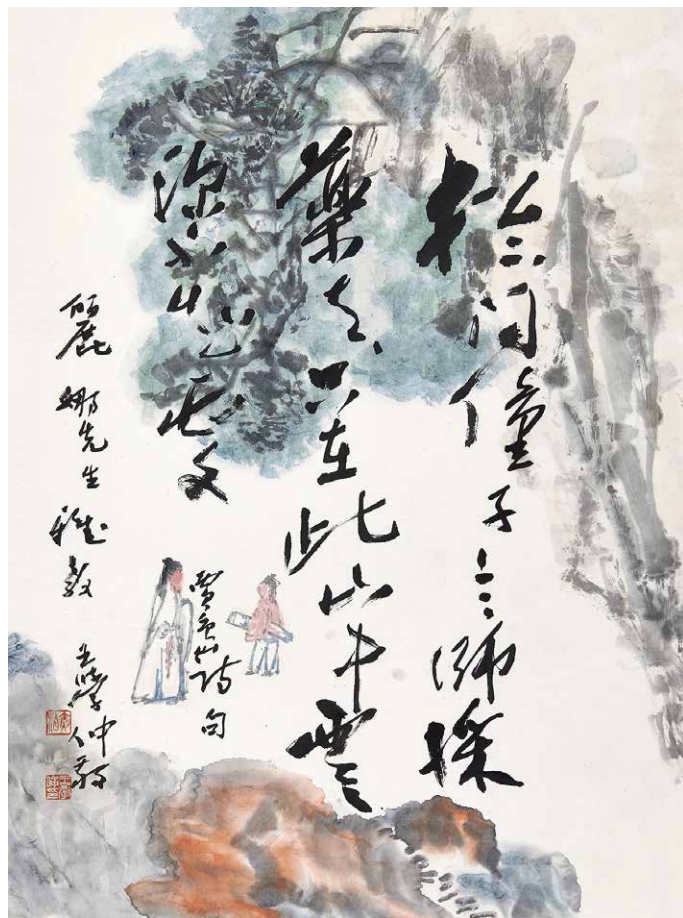 松下問僮子言師採
藥去只在此山中雲
深不知處
賈島詩句
麗娜先生雅教 王學仲敬